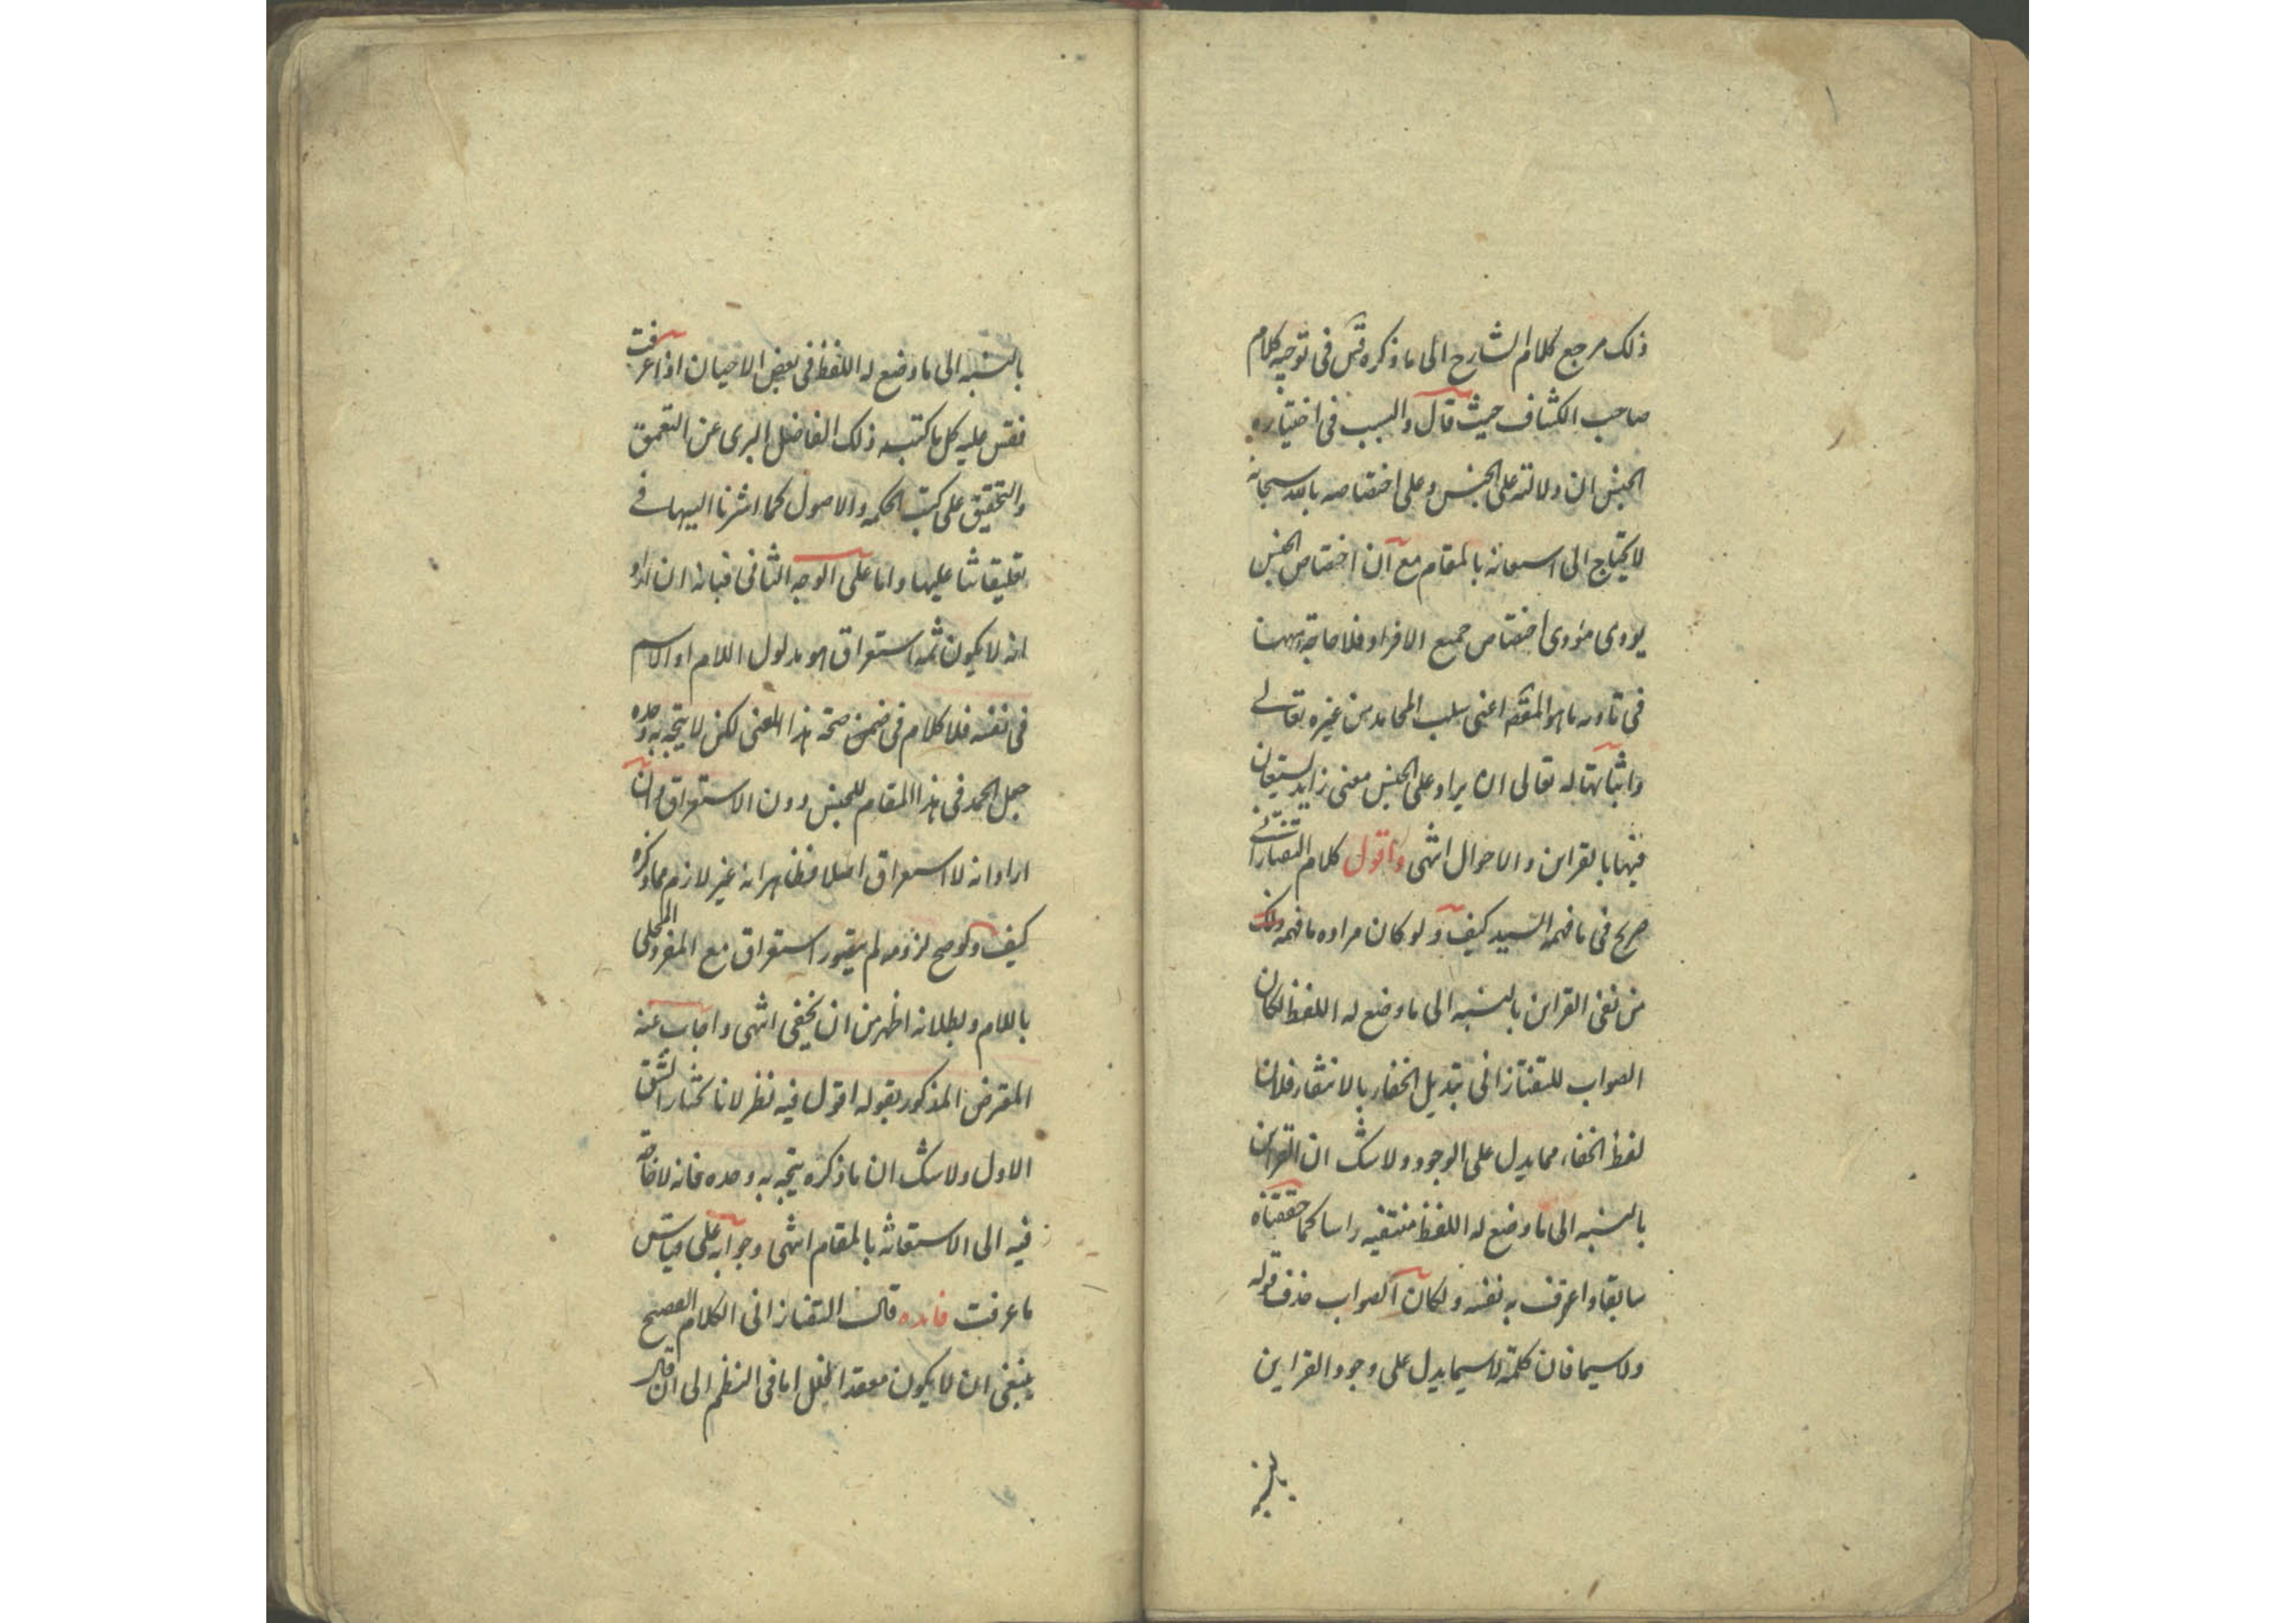 ذلك مرجع كلام الشارح الى ما ذكره قس فى توجيه كلام
صاحب الكشاف حيث قال والسبب فى اختياره
الجنس ان دلالته على الجنس وعلى اختصاصه بالله سبحانه
لا يحتاج الى استعانة بالمقام مع ان اختصاص الجنس
يودى مؤدى اختصاص جميع الافراد فلا حاجة ههنا
فى تاديه ما هو المقصه اعنى سلب المحامد من غيره تعالى
واثباتها له تعالى ان يراد على الجنس معنى زايد يستعان
فيها بالقراين والاحوال انتهى واقول كلام التفتازانى
صريح فى ما فهمه السيد كيف ولو كان مراده ما فهمه ذلك
من نفى القراين بالنسبه الى ما وضع له اللفظ لكان
الصواب للتفتازانى تبديل الخفاء بالانتفاء فلان
لفظ الخفاء مما يدل على الوجود ولا شك ان القراين
بالنسبه الى ما وضع له اللفظ منتفيه راسا كما حققناه
سابقا واعرف به نفسه ولكان الصواب حذف قوله
ولا سيما فان كلمة لا سيما يدل على وجود القراين
بالنسبه
بالنسبه الى ما وضع له اللفظ فى بعض الاحيان اذا عرفت
فقس عليه كل ما كتبه ذلك الفاضل البرى عن التعمق
والتحقيق على كتب الحكمه والاصول كما اشرنا اليها فى
تعليقاتنا عليها واما على الوجه الثانى فبانه ان اراد
انه لا يكون ثمه استغراق هو مدلول اللام او الاسم
فى نفسه فلا كلام فى ضمن صحة هذا المعنى لكن لا يتجه به وحده
جعل الحمد فى هذا المقام للجنس دون الاستغراق وان
اراد انه لا استغراق اصلا فظاهر انه غير لازم مما ذكره
كيف ولو صح لزومه لم يتصور استغراق مع المفرد المحلى
باللام وبطلانه اظهر من ان يخفى انتهى واجاب عنه
المعترض المذكور بقوله اقول فيه نظر لانا نختار الشق
الاول ولا شك ان ما ذكره يتجه به وحده فانه لا حاجة
فيه الى الاستعانة بالمقام انتهى وجوابه على قياس
ما عرفت فائده قال التفتازانى الكلام الفصيح
ينبغى ان لا يكون معقدا لخلل اما فى النظم الى ان قال